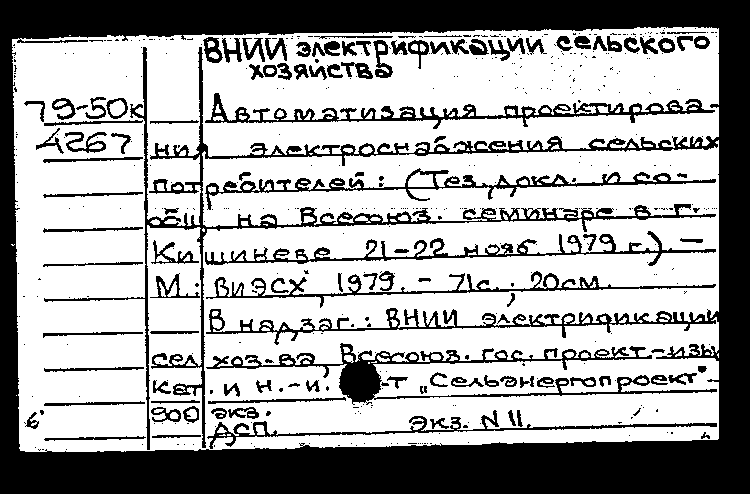 ВНИИ электрификации сельского
хозяйства
79-50к Автоматизация проектирова-
4267 ния электроснабжения сельских
потребителей: (Тез. докл. и со-
общ. на Всесоюз. семинаре в г.
Кишиневе 21-22 нояб. 1979 г.) —
М.: ВИЭСХ, 1979. - 71с.; 20см.
В надзаг.: ВНИИ электрификации
сел. хоз-ва, Всесоюз. гос. проект.-изы
кат. и н.-и. -т „Сельэнергопроект"-
6 900 экз.
ДСП. Экз. N 11.